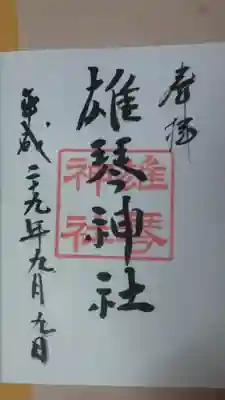 奉拝
雄琴神社
雄琴
神社
平成二十九年九月九日